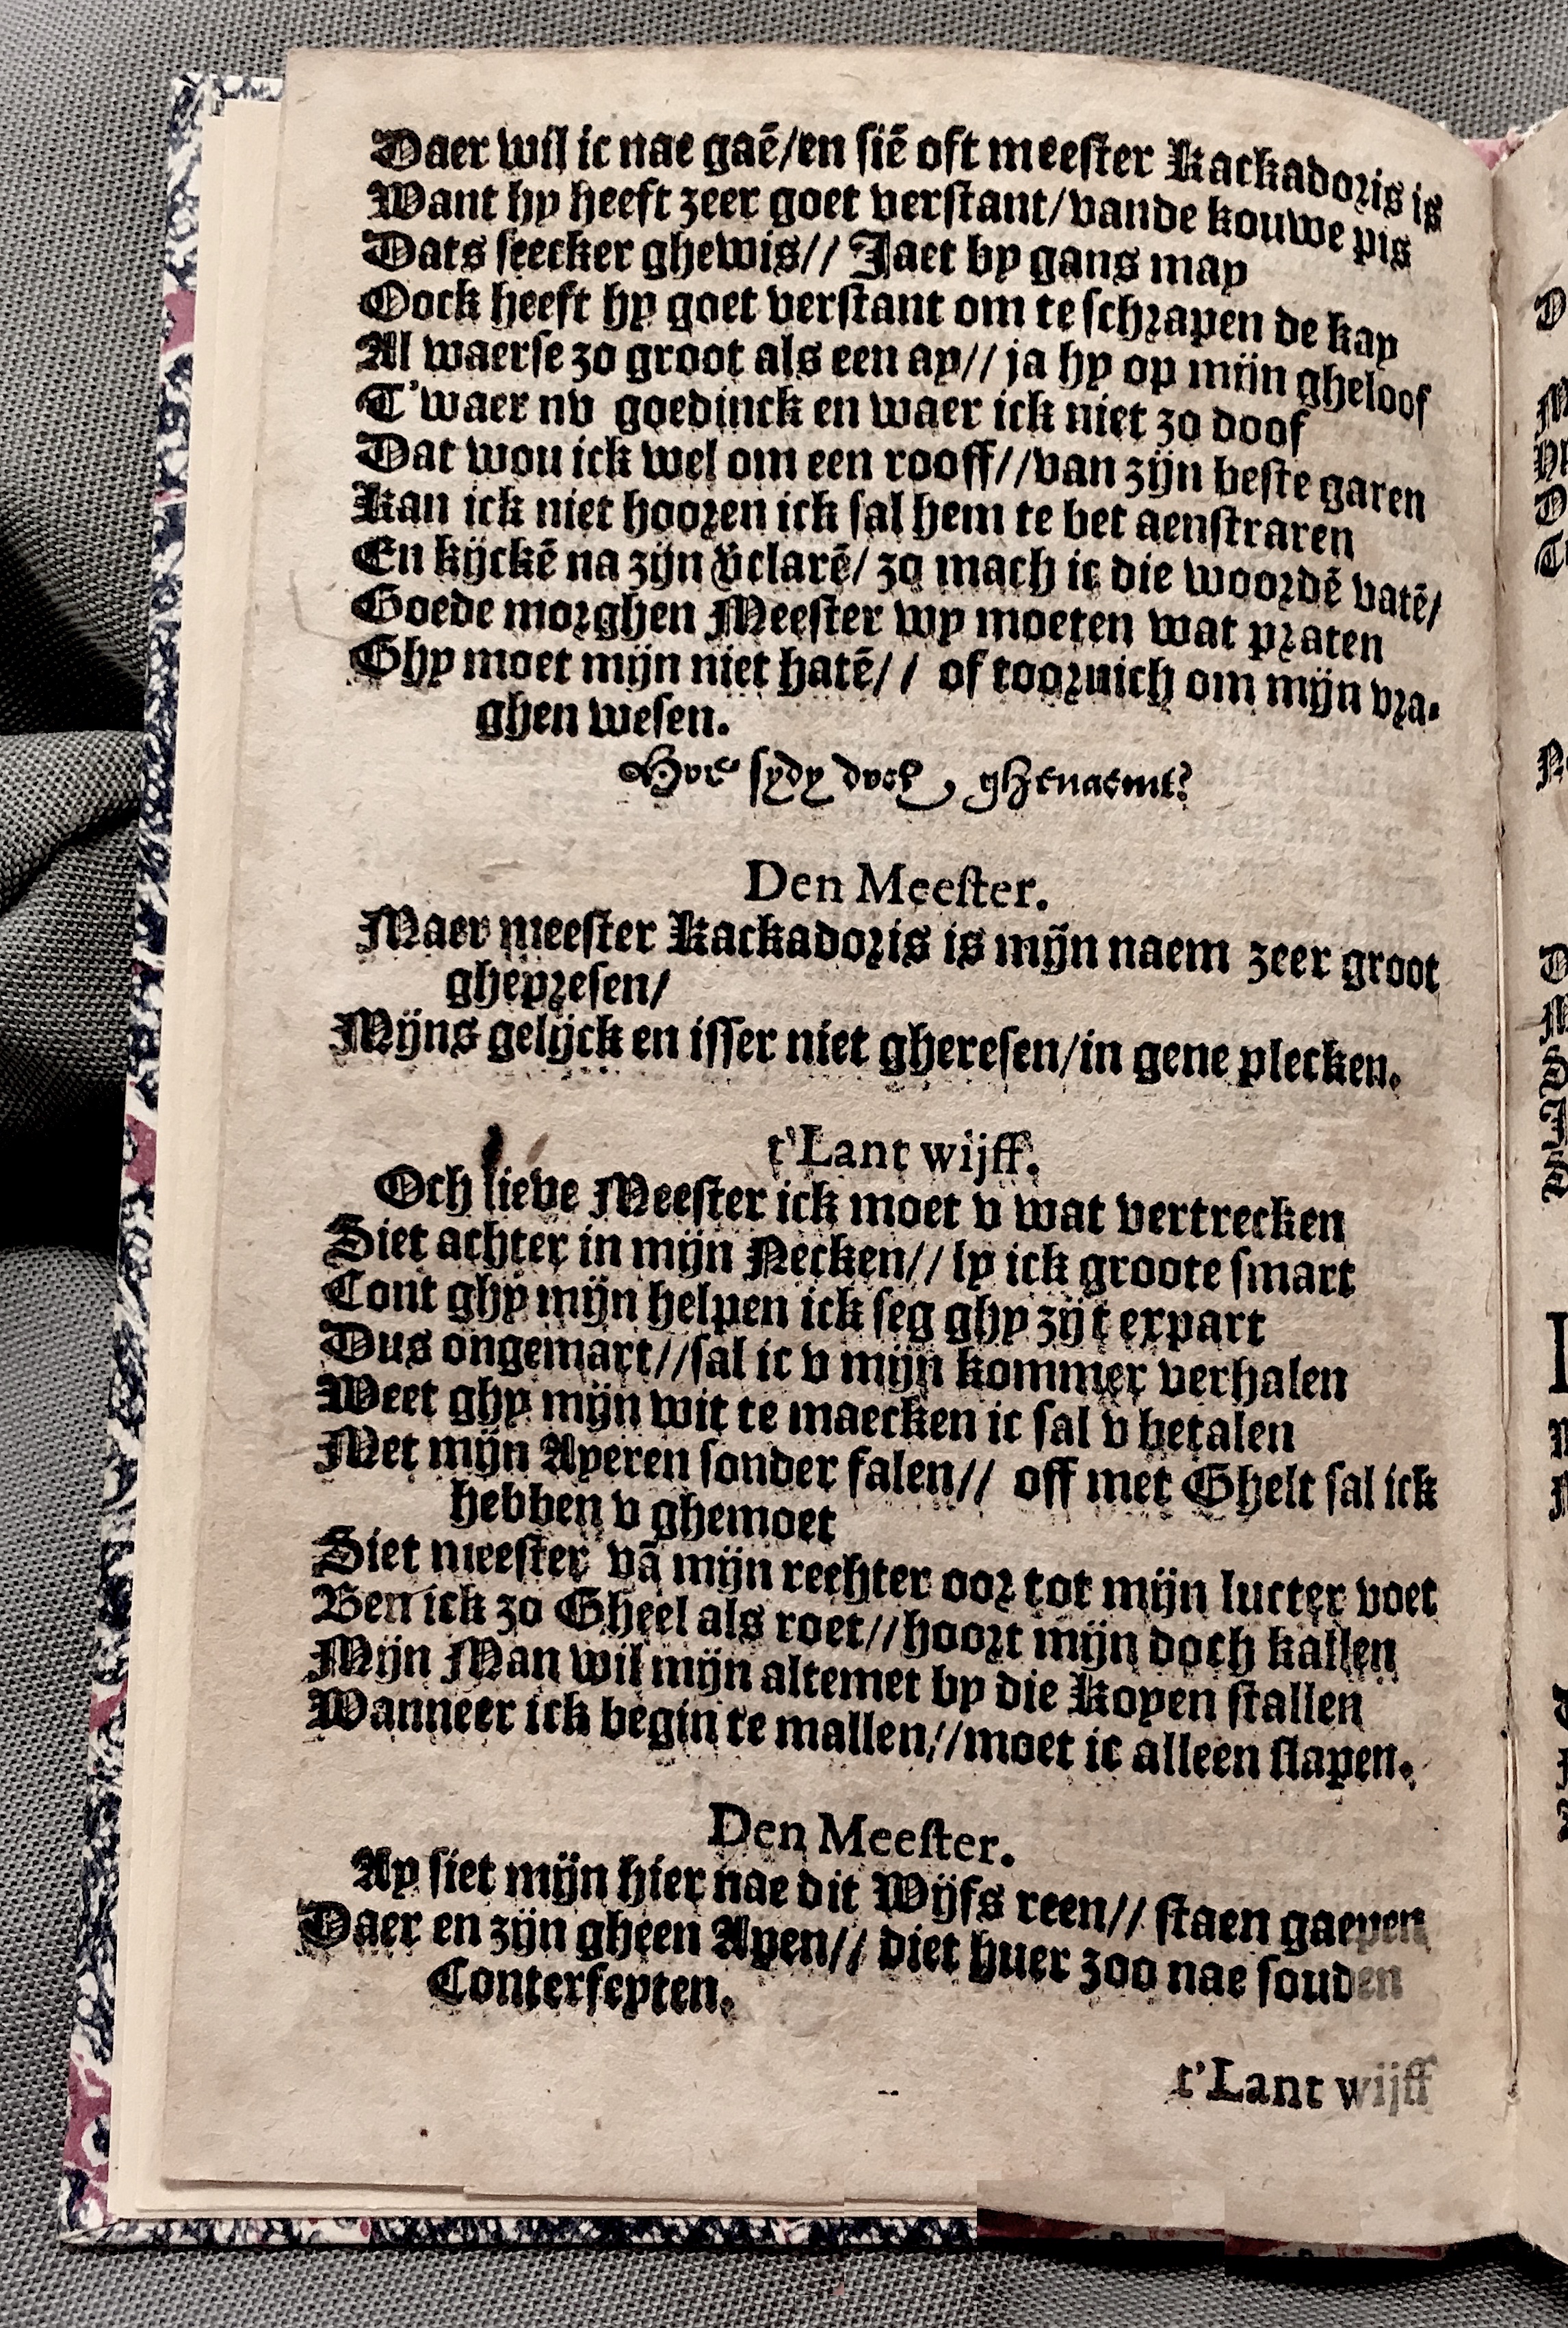 Daer wil ic nae gaē/en siē oft meester Kackadoris is
Want hy heeft zeer goet verstant/vande kouwe pis
Dats seecker ghewis// Jaet by gans may
Oock heeft hy goet verstant om te schrapen de kay
Al waerse zo groot als een ay// ja hy op mijn gheloof
T'waer nv goedinck en waer ick niet zo doof
Dat wou ick wel om een rooff//van zijn beste garen
Kan ick niet hooren ick sal hem te bet aenstraren
En kijckē na zijn v̄clarē/ zo mach ic die woordē vatē/
Goede morghen Meester wy moeten wat praten
Ghy moet mijn niet hatē// of toornich om mijn vra-
ghen wesen.
Hoe sydy doch ghenaemt?
Den Meester.
Maer meester Kackadoris is mijn naem zeer groot
ghepresen/
Mijns gelijck en isser niet gheresen/in gene plecken.
t'Lant wijff.
Och lieve Meester ick moet v wat vertrecken
Siet achter in mijn Necken// ly ick groote smart
Cont ghy mijn helpen ick seg ghy zijt expart
Dus ongemart//sal ic v mijn kommer verhalen
Weet ghy mijn wit te maecken ic sal v betalen
Met mijn Ayeren sonder falen// off met Ghelt sal ick
hebben v ghemoet
Siet meester vā mijn rechter oor tot mijn lucter voet
Ben ick zo Gheel als roet//hoort mijn doch kallen
Mijn Man wil mijn altemet by die Koyen stallen
Wanneer ick begin te mallen//moet ic alleen slapen.
Den Meester.
Ay siet mijn hier nae dit Wijfs reen// staen gaepen
Daer en zijn gheen Apen// diet huer zoo nae souden
Conterfeyten.
t'Lant wijff